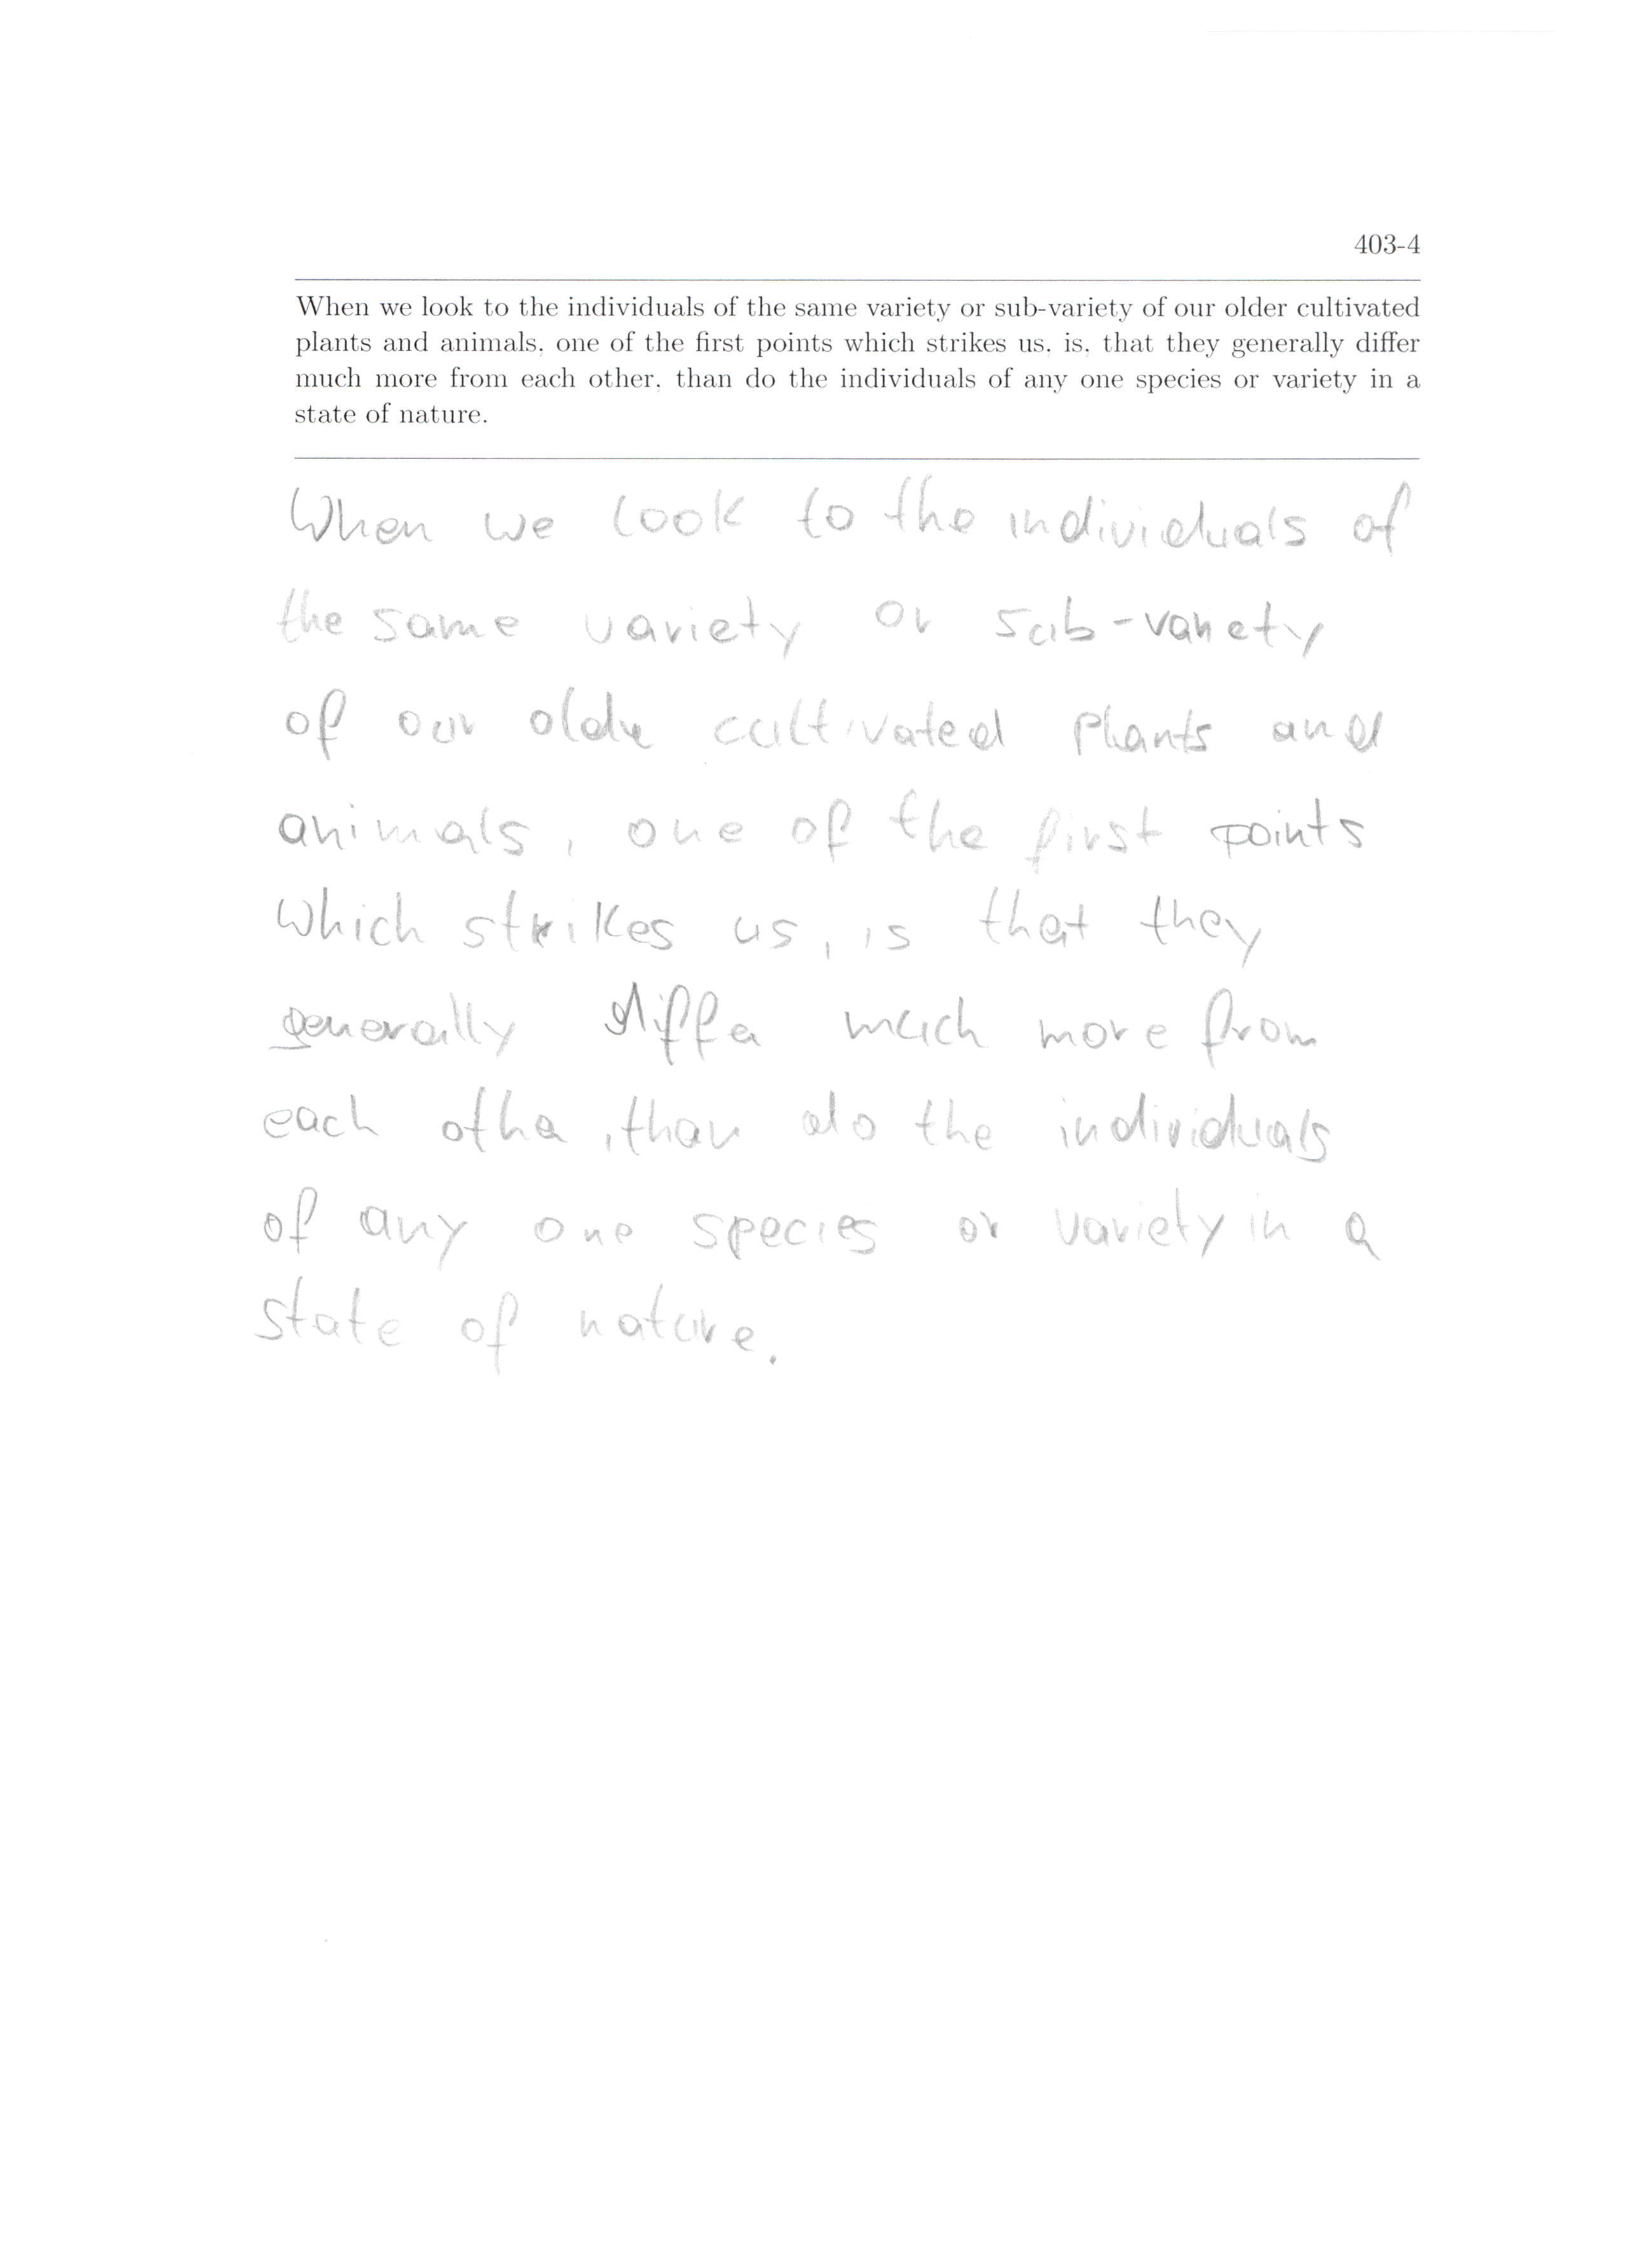 403-4
When we look to the individuals of the same variety or sub-variety of our older cultivated
plants and animals, one of the first points which strikes us, is, that they generally differ
much more from each other, than do the individuals of any one species or variety in a
state of nature.
When we look to the individuals of
the same variety or sub-variety
of our older cultivated plants and
animals, one of the first points
which strikes us, is that they
generally differ much more from
each other, than do the individuals
of any one species or variety in a
state of nature.